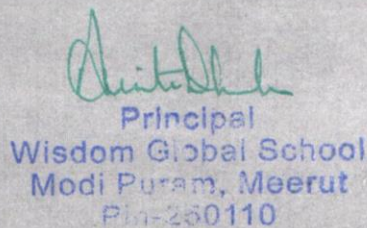 Principal
Wisdom Global School
Modi Puram, Meerut
Pin-250110